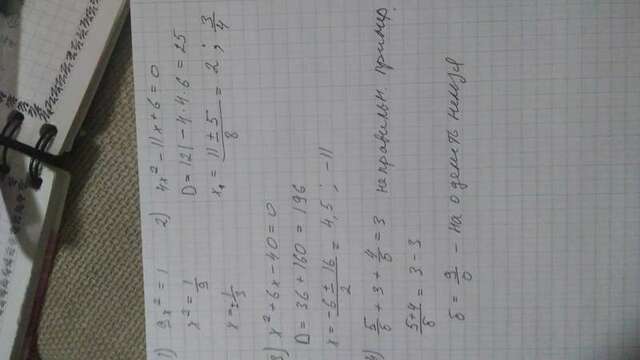 1) 9x² = 1
x² = 1/9
x = ±1/3
2) 4x² - 11x + 6 = 0
D = 121 - 4·4·6 = 25
x₁ = (11 ± 5)/8 = 2; 3/4
3) x² + 6x - 40 = 0
D = 36 + 160 = 196
x = (-6 ± 16)/2 = 4,5; -11
4) 5/б + 3 + 4/б = 3 неправильн пример
(5+4)/б = 3 - 3
б = 9/0 - на 0 делить нельзя